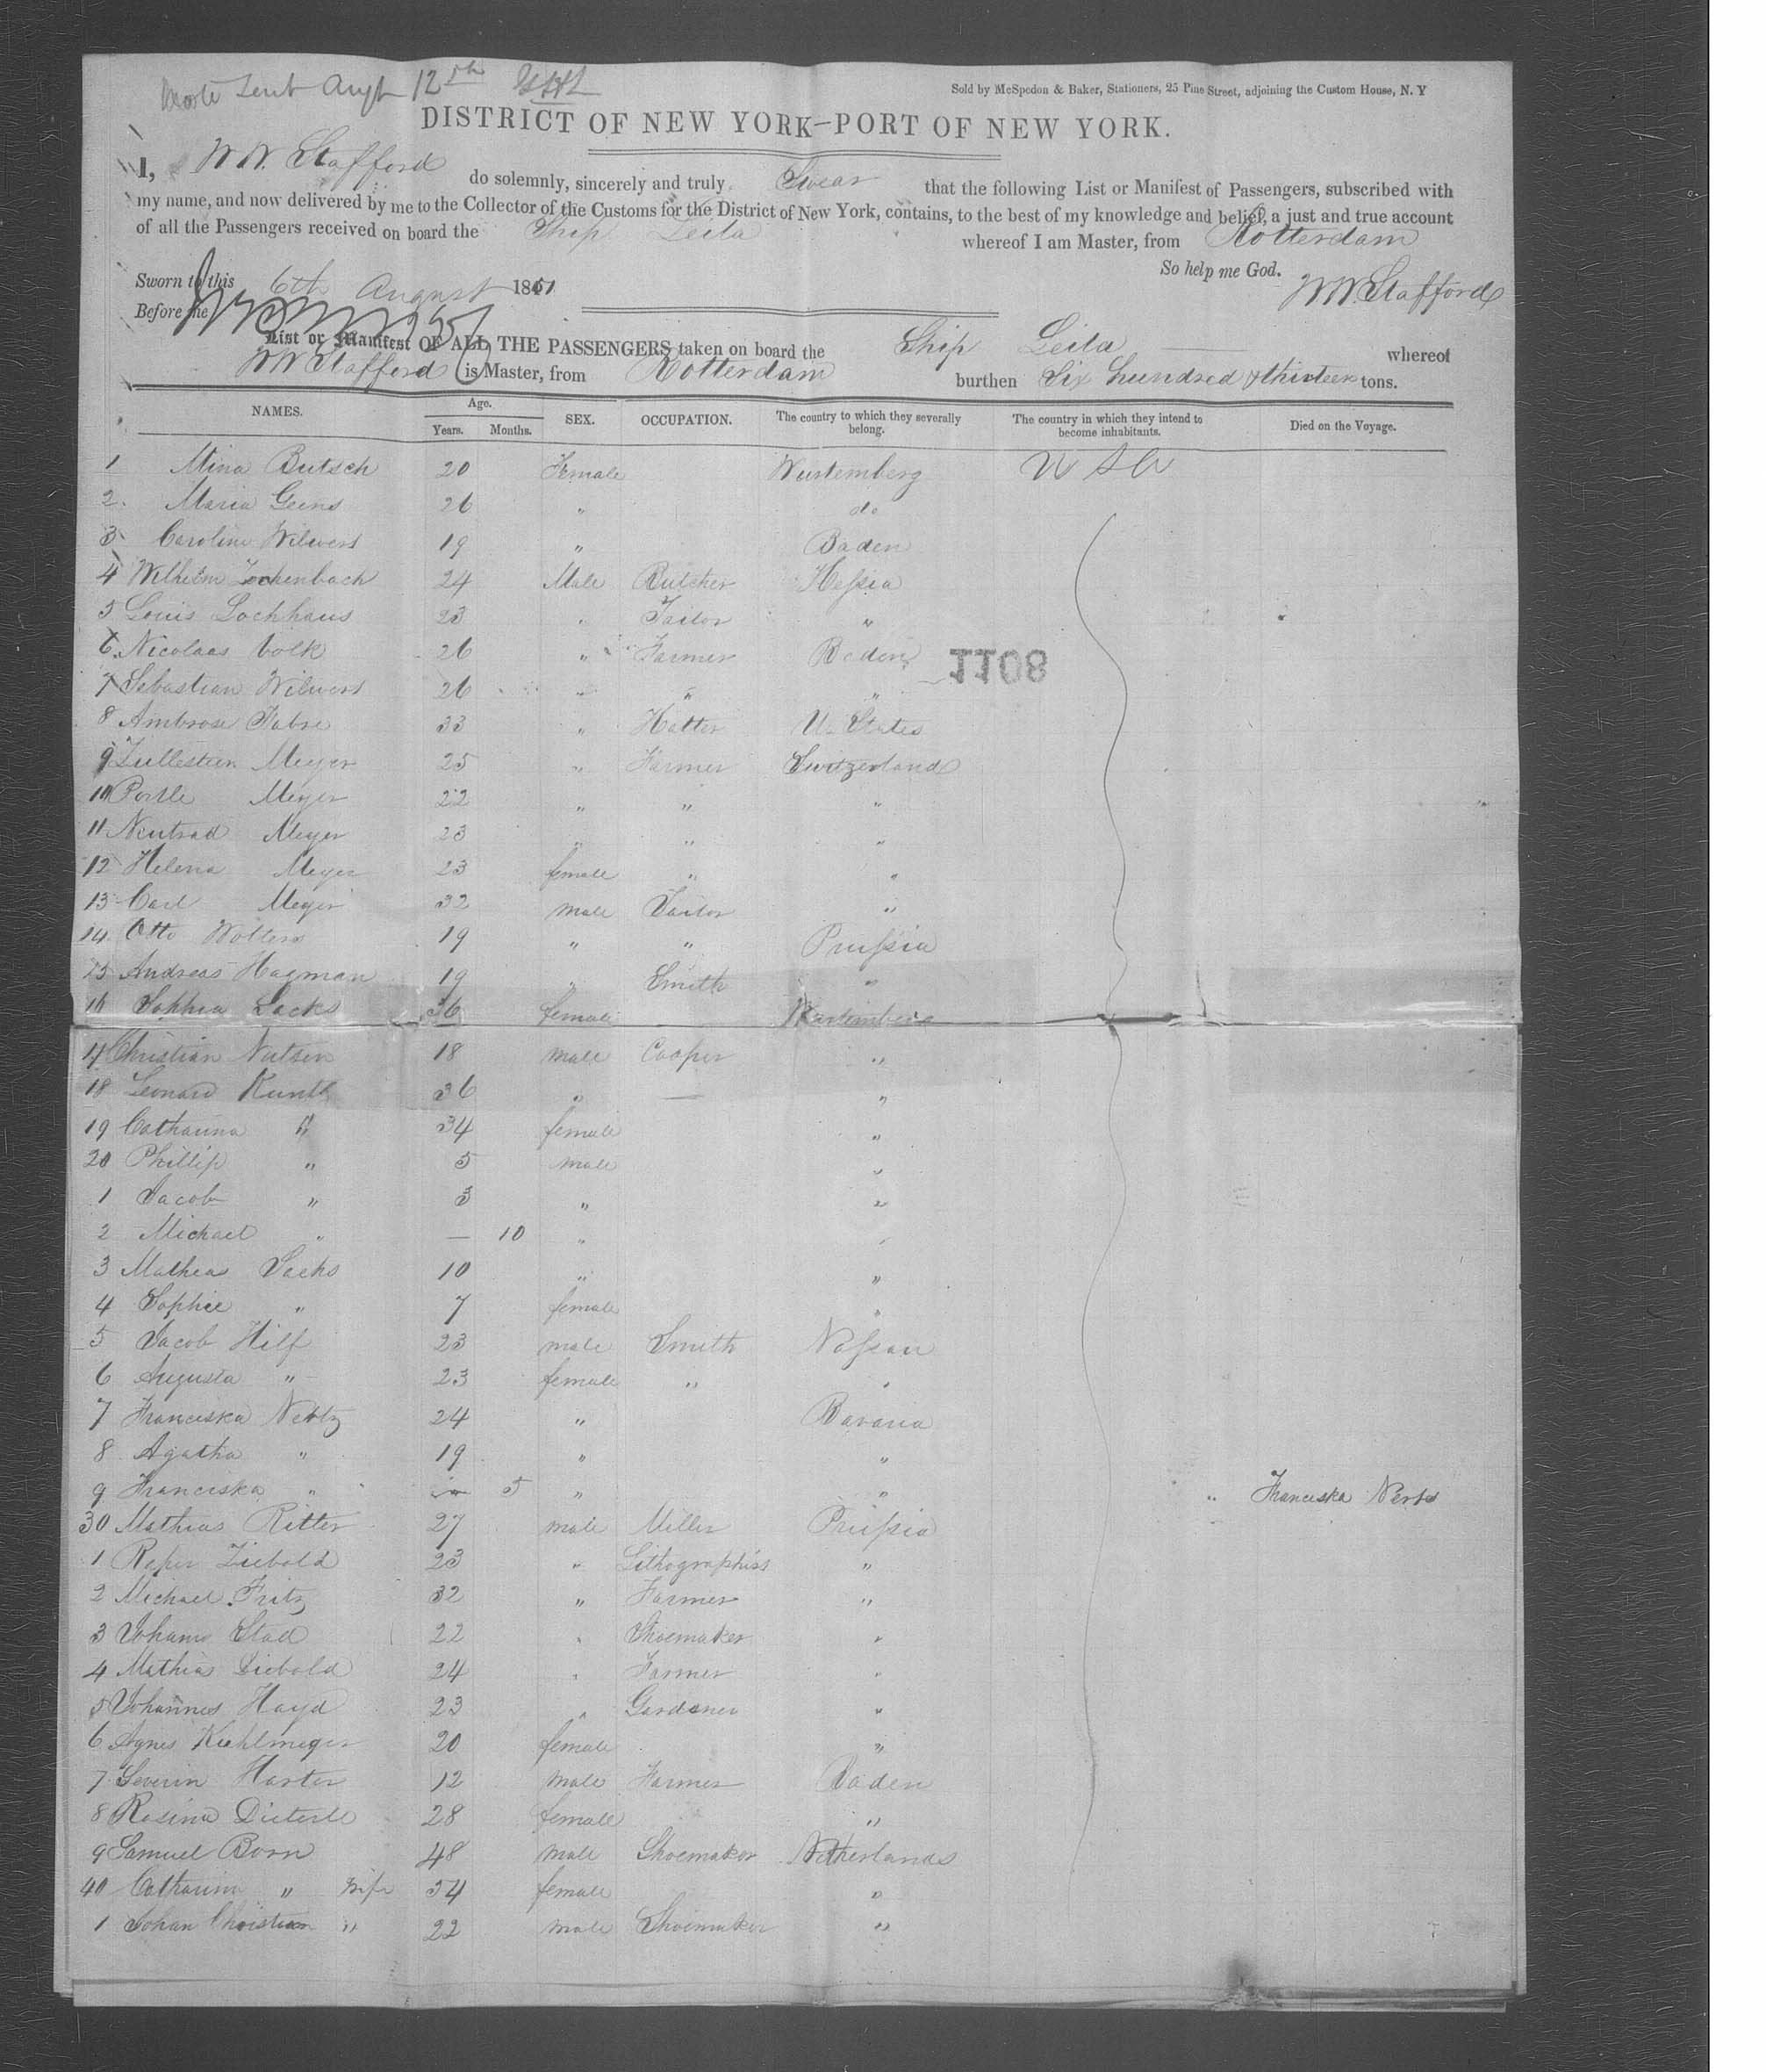 Sent Augt 12th
Sold by McSpedon & Baker, Stationers, 25 Pine Street, adjoining the Custom House, N. Y
DISTRICT OF NEW YORK—PORT OF NEW YORK.
I, W W. Stafford do solemnly, sincerely and truly Swear that the following List or Manifest of Passengers, subscribed with
my name, and now delivered by me to the Collector of the Customs for the District of New York, contains, to the best of my knowledge and belief, a just and true account
of all the Passengers received on board the Ship Leila whereof I am Master, from Rotterdam
So help me God.
Sworn to this 6th August 1851 W W. Stafford
Before me
List or Manifest OF ALL THE PASSENGERS taken on board the Ship Leila whereof
W W Stafford is Master, from Rotterdam burthen Six hundred & thirteen tons.
NAMES. Age. Years. Months. SEX. OCCUPATION. The country to which they severally belong. The country in which they intend to become inhabitants. Died on the Voyage.
1 Mina Butsch 20 Female Wurtemberg U S A
2 Maria Geens 26 " do
3 Caroline Wilwert 19 " Baden
4 Wilhelm 24 Male Butcher Hessia
5 Louis Lochhaus 23 " Tailor "
6 Nicolaas Volk 26 " Farmer Baden
1108
7 Sebastian Wilwert 26 " " "
8 Ambrose Fabre 33 " Hatter U. States
9 Meyer 25 " Farmer Switzerland
10 Meyer 22 " " "
11 Meyer 23 " " "
12 Helena Meyer 23 female " "
13 Carl Meyer 32 male Tailor "
14 Otto Wolters 19 " " Prussia
15 Andreas Hagman 19 " Smith "
16 Sophia Sacks 36 female Wurtemberg
17 Christian Nutsen 18 male Cooper "
18 Leonard Kunth 36 " — "
19 Catharina " 34 female "
20 Phillip " 5 male "
1 Jacob " 3 " "
2 Michael " — 10 " "
3 Matheas Sacks 10 " "
4 Sophie " 7 female "
5 Jacob Hilf 23 male Smith Nassau
6 Augusta " 23 female " "
7 Franciska Nertz 24 " Bavaria
8 Agatha " 19 " "
9 Franciska " 5 " " " Franciska Nertz
30 Mathias Ritter 27 male Miller Prussia
1 Ziebold 23 " Lithographiss "
2 Michael Fritz 32 " Farmer "
3 Johann Stad 22 " Shoemaker "
4 Mathias Diebold 24 " Farmer "
5 Johannes Hayd 23 " Gardener "
6 Agnes Kiehlmeyer 20 female "
7 Severin Harter 12 male Farmer Baden
8 Rosina Dieterle 28 female "
9 Samuel Born 48 male Shoemaker Netherlands
40 Catharina " Wife 54 female "
1 Johan Christian " 22 male Shoemaker "